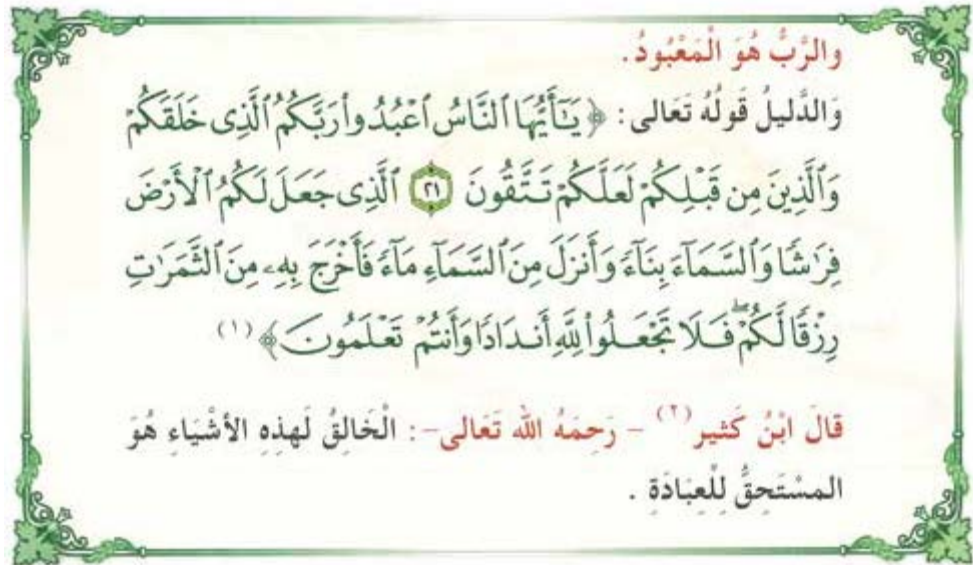 والرَّبُّ هُوَ الْمَعْبُودُ.
وَالدَّليلُ قَوْلُهُ تَعَالى: ﴿يَـٰٓأَيُّهَا ٱلنَّاسُ ٱعْبُدُوا۟ رَبَّكُمُ ٱلَّذِى خَلَقَكُمْ
وَٱلَّذِينَ مِن قَبْلِكُمْ لَعَلَّكُمْ تَتَّقُونَ ٢١ ٱلَّذِى جَعَلَ لَكُمُ ٱلْأَرْضَ
فِرَٰشًا وَٱلسَّمَآءَ بِنَآءً وَأَنزَلَ مِنَ ٱلسَّمَآءِ مَآءً فَأَخْرَجَ بِهِۦ مِنَ ٱلثَّمَرَٰتِ
رِزْقًا لَّكُمْ ۖ فَلَا تَجْعَلُوا۟ لِلَّهِ أَندَادًا وَأَنتُمْ تَعْلَمُونَ﴾ (١)
قالَ ابْنُ كَثير (٢) - رَحِمَهُ الله تَعَالى-: الْخَالِقُ لَهذِهِ الأشْيَاءِ هُوَ
المسْتَحِقُّ لِلْعِبَادَةِ .